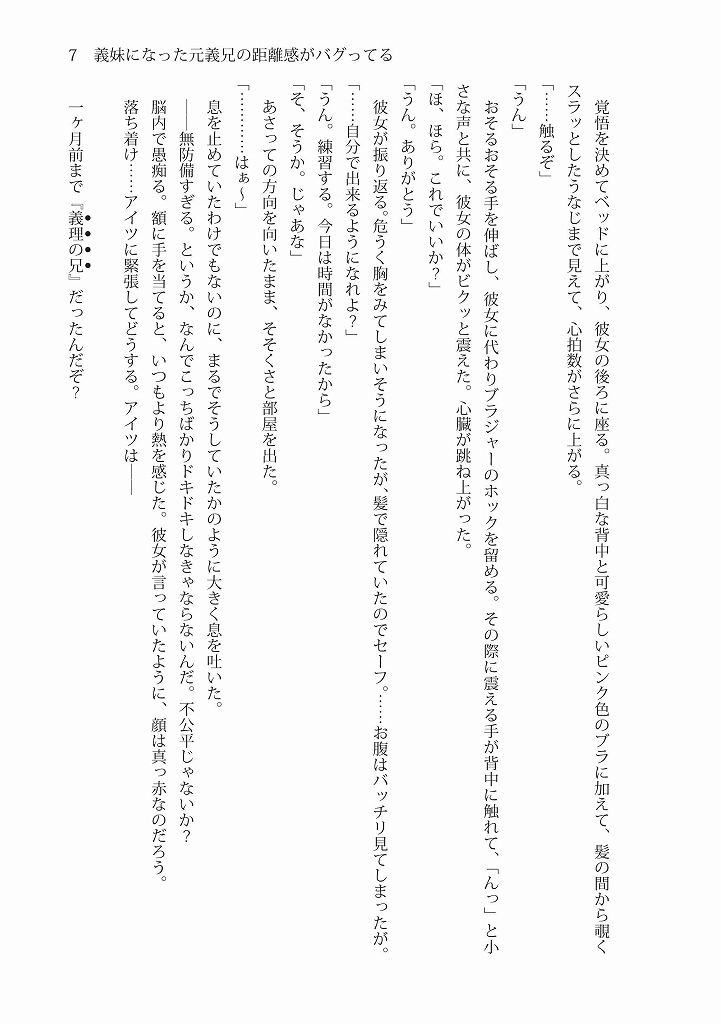 7　義妹になった元義兄の距離感がバグってる
覚悟を決めてベッドに上がり、彼女の後ろに座る。真っ白な背中と可愛らしいピンク色のブラに加えて、髪の間から覗く
スラッとしたうなじまで見えて、心拍数がさらに上がる。
「……触るぞ」
「うん」
おそるおそる手を伸ばし、彼女に代わりブラジャーのホックを留める。その際に震える手が背中に触れて、「んっ」と小
さな声と共に、彼女の体がビクッと震えた。心臓が跳ね上がった。
「ほ、ほら。これでいいか？」
「うん。ありがとう」
彼女が振り返る。危うく胸をみてしまいそうになったが、髪で隠れていたのでセーフ。……お腹はバッチリ見てしまったが。
「……自分で出来るようになれよ？」
「うん。練習する。今日は時間がなかったから」
「そ、そうか。じゃあな」
あさっての方向を向いたまま、そそくさと部屋を出た。
「…………はぁ～」
息を止めていたわけでもないのに、まるでそうしていたかのように大きく息を吐いた。
――無防備すぎる。というか、なんでこっちばかりドキドキしなきゃならないんだ。不公平じゃないか？
脳内で愚痴る。額に手を当てると、いつもより熱を感じた。彼女が言っていたように、顔は真っ赤なのだろう。
落ち着け……アイツに緊張してどうする。アイツは――
一ヶ月前まで『義理の兄』だったんだぞ？